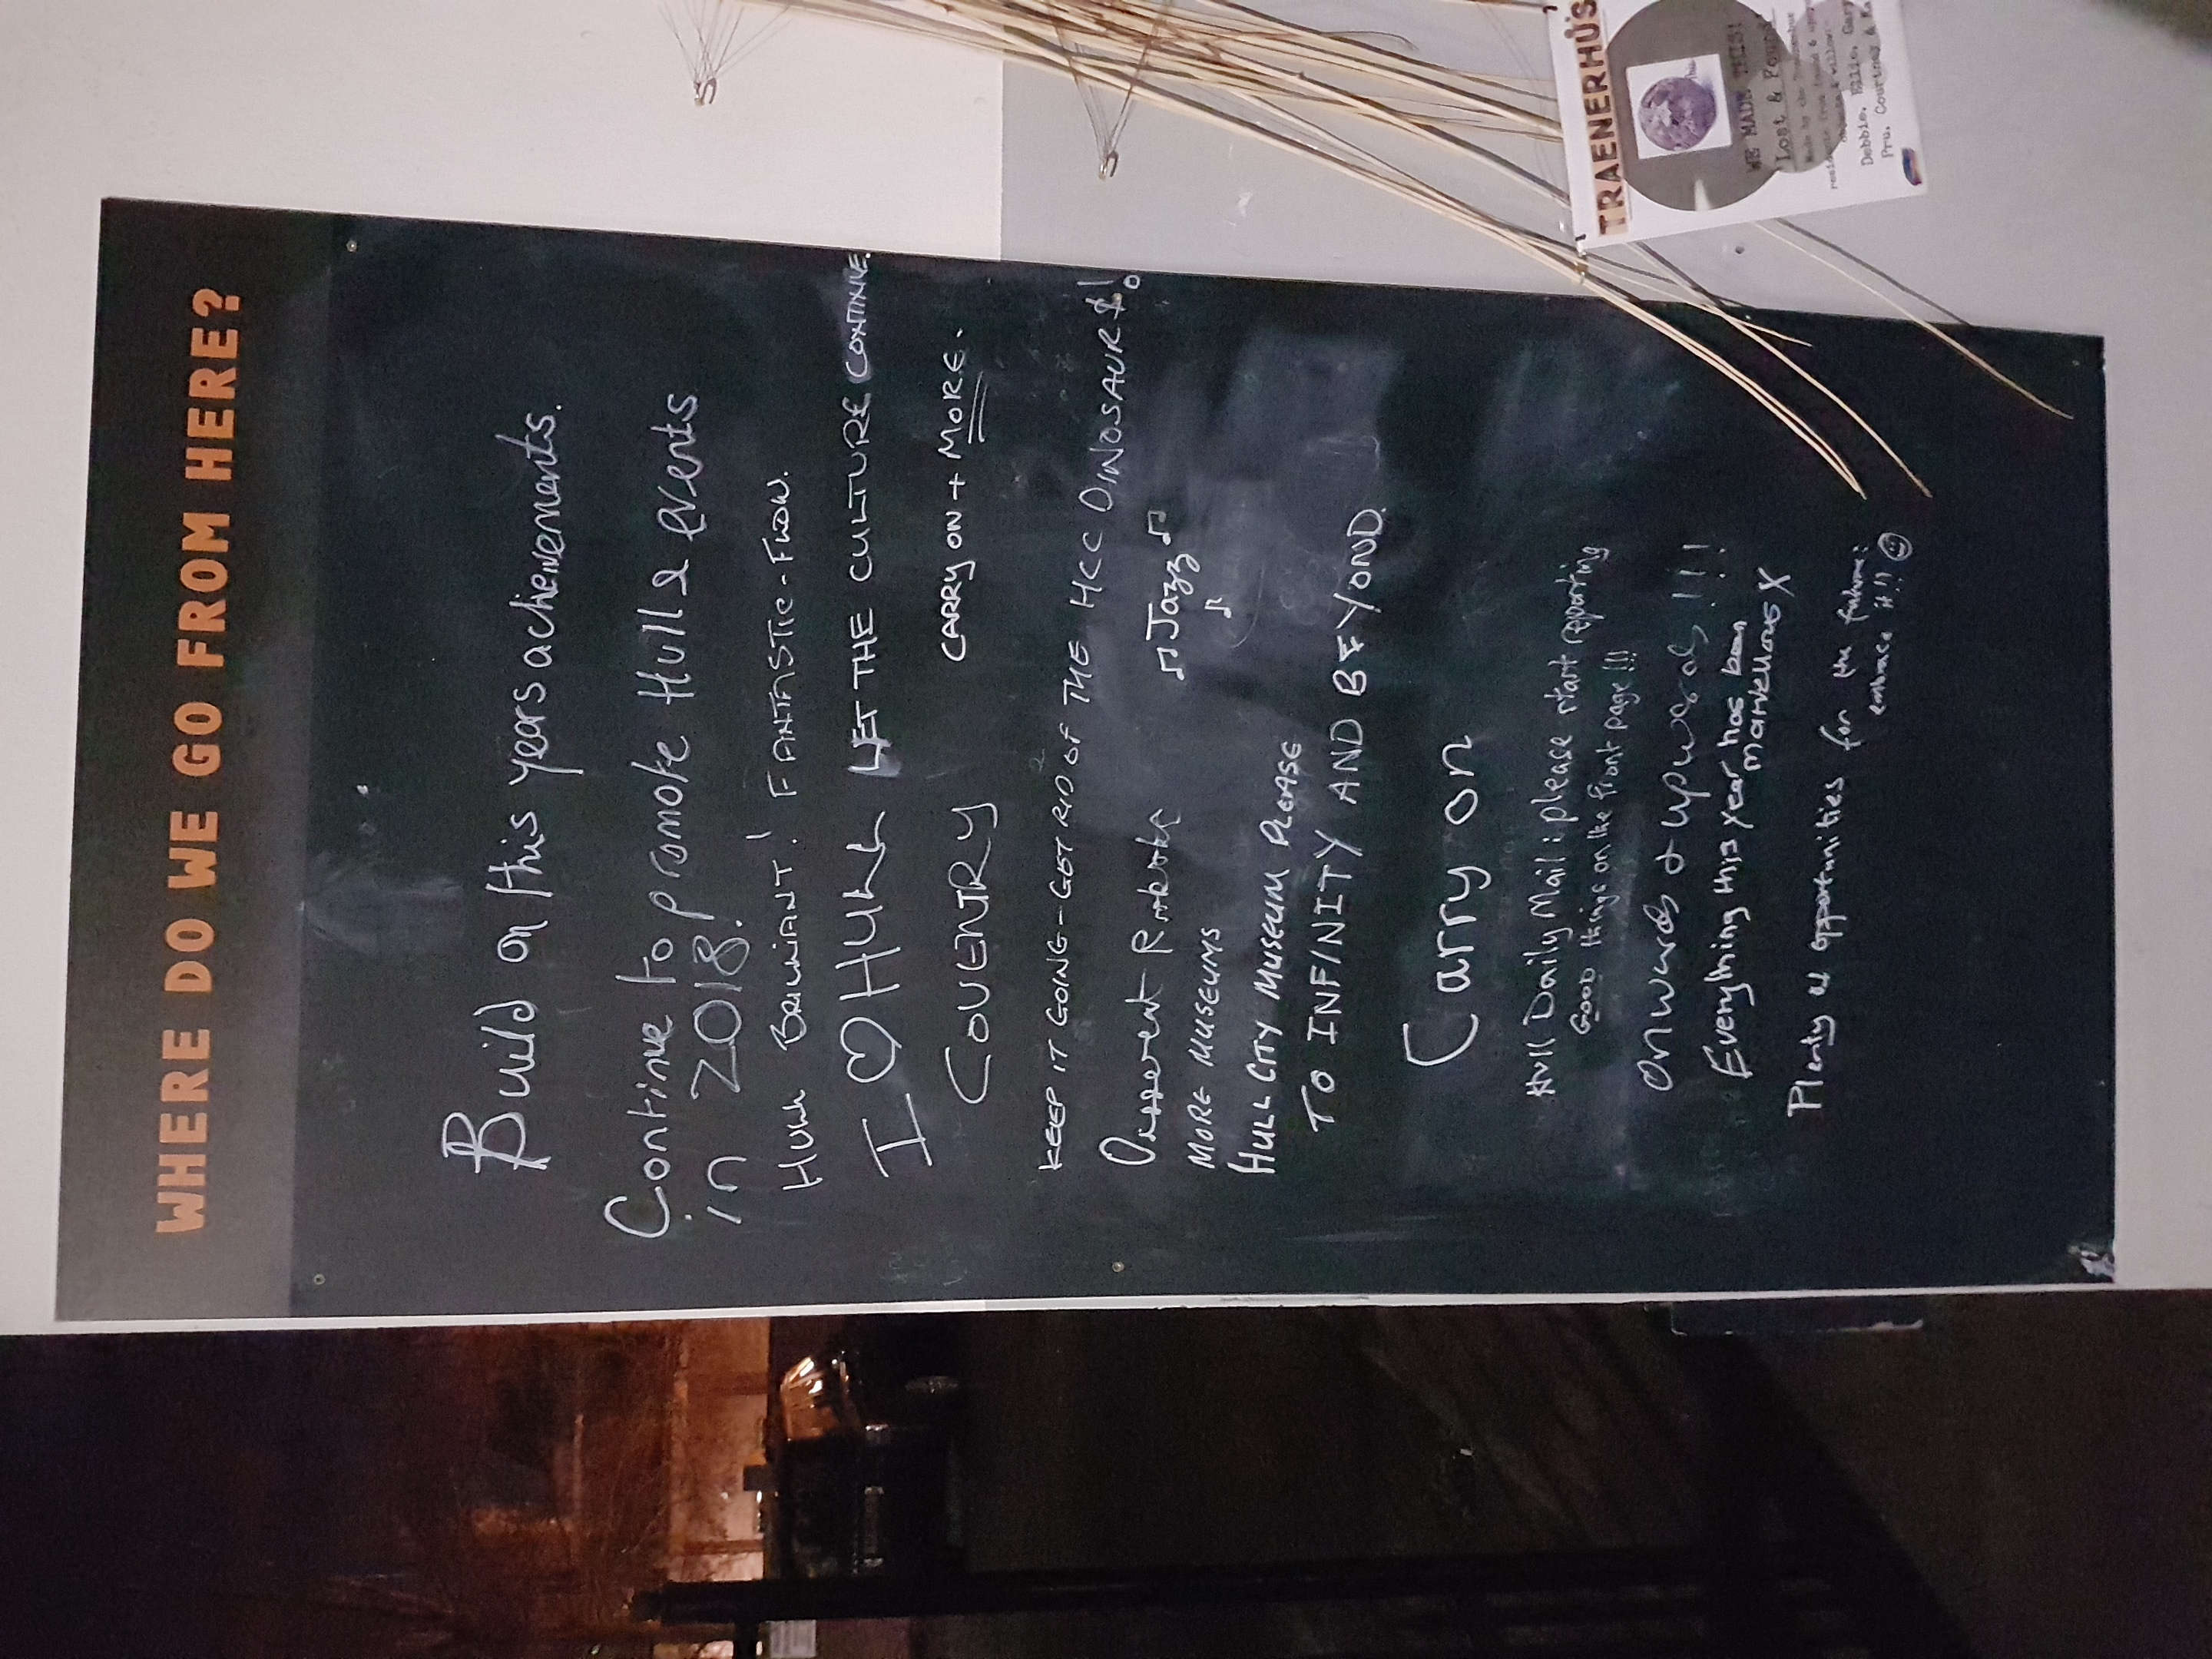 WHERE DO WE GO FROM HERE?
Build on this years achievements.
Continue to promote Hull & events
in 2018!
HULL BRILLIANT! FANTASTIC-FLOW.
I ♡ HULL LET THE CULTURE CONTINUE.
COVENTRY CARRY ON + MORE.
KEEP IT GOING - GET RID OF THE HCC DINOSAURS!
♫ Jazz ♫
♪
MORE MUSEUMS
HULL CITY MUSEUM PLEASE
TO INFINITY AND BEYOND.
Carry on
Hull Daily Mail: please start reporting
GOOD things on the front page!!!
Onwards & upwards!!!
Everything this year has been
marvellous X
Plenty of opportunities for the future:
embrace it!! ☺
TRAENERHÜS
WE MADE THIS!
Lost & Found
Debbie, Ellie,
Pru, Courtney &